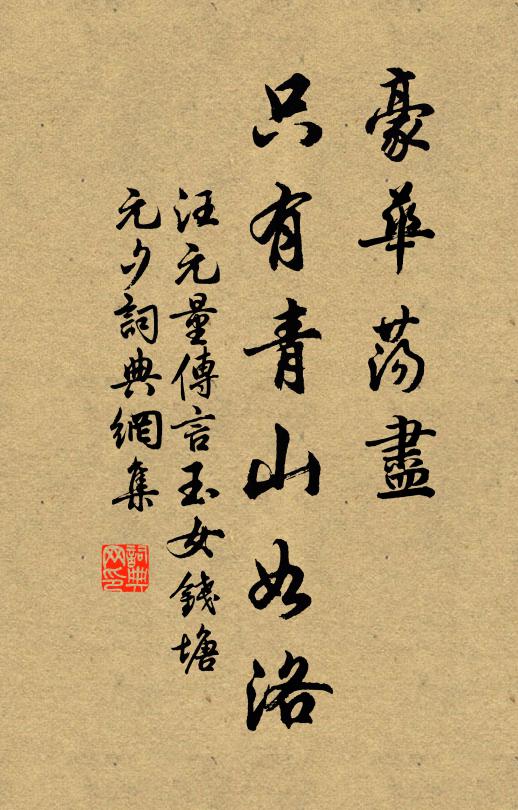 豪華蕩盡
只有青山如洛
汪元量傳言玉女錢塘
元夕詞典網集
詞典网印